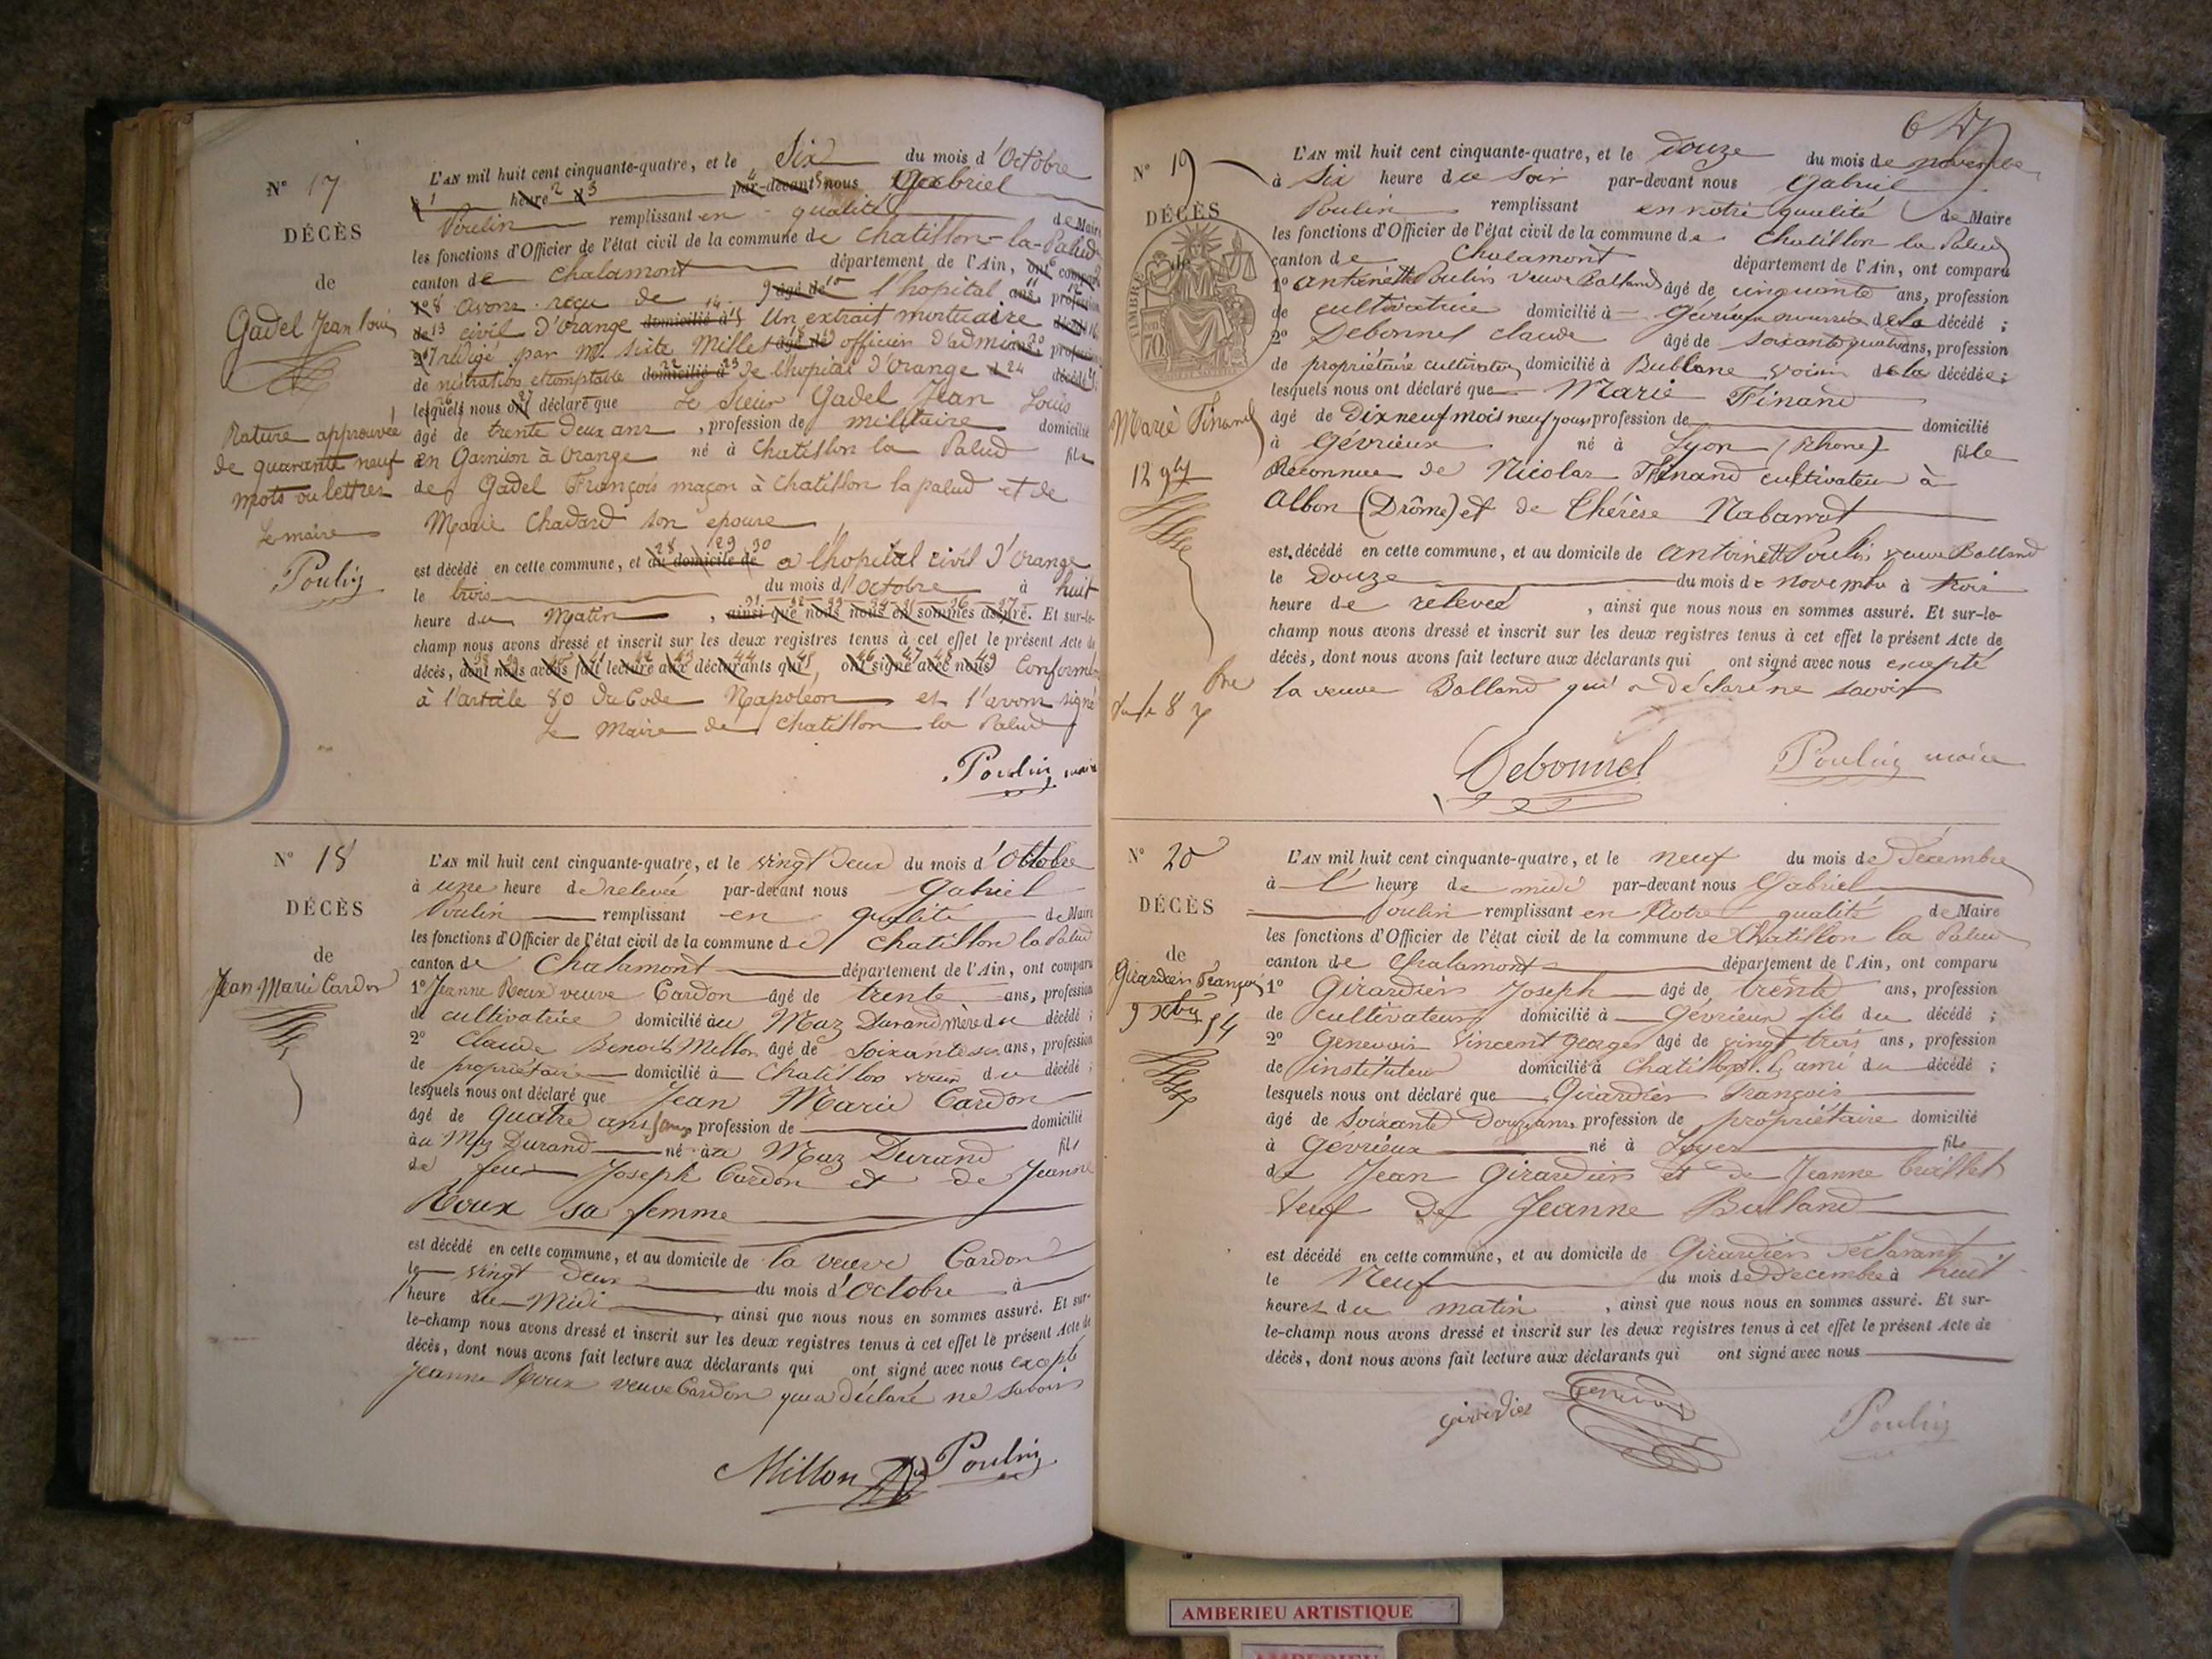 N° 17
DÉCÈS
de
Gadel Jean Louis
Rature approuvée
de quarante neuf
mots ou lettres
Le maire
Poulin
L'AN mil huit cent cinquante-quatre, et le Six du mois d'Octobre
1 heure 2 à 3 par-devant nous Gabriel
Poulin remplissant en qualité de Maire
les fonctions d'Officier de l'état civil de la commune de Chatillon-la-Palud
canton de Chalamont département de l'Ain, ont comparu
1° 8 avons reçu de 9 âgé de 10 l'hopital ans, profession
de 13 civil d'Orange domicilié à Un extrait mortuaire
2° rédigé par Mr. Sixte Millet âgé de officier d'admi ans, profession
de nistration comptable domicilié à de l'hopital d'Orange 24 décédé
lesquels nous ont déclaré que Le Sieur Gadel Jean Louis
âgé de trente deux ans, profession de militaire domicilié
en Garnison à Orange né à Chatillon la Palud fils
de Gadel François maçon à Chatillon la palud et de
Marie Chadard son epouse
est décédé en cette commune, et au domicile de a l'hopital civil d'Orange
le trois du mois d'Octobre à huit
heure du Matin, ainsi que nous nous en sommes assuré. Et sur-le-
champ nous avons dressé et inscrit sur les deux registres tenus à cet effet le présent Acte de
décès, dont nous avons fait lecture aux déclarants qui ont signé avec nous Conformé
à l'article 80 du Code Napoléon et l'avons signé
Le Maire de Chatillon la Palud
Poulin maire
N° 18
DÉCÈS
de
Jean Marie Cardon
L'AN mil huit cent cinquante-quatre, et le vingt deux du mois d'Octobre
à une heure de relevée par-devant nous Gabriel
Poulin remplissant en qualité de Maire
les fonctions d'Officier de l'état civil de la commune de Chatillon la Palud
canton de Chalamont département de l'Ain, ont comparu
1° Jeanne Roux veuve Cardon âgé de trente ans, profession
de cultivatrice domicilié au Maz Durand mère du décédé;
2° Claude Benoit Millon âgé de Soixante six ans, profession
de propriétaire domicilié à Chatillon voisin du décédé;
lesquels nous ont déclaré que Jean Marie Cardon
âgé de quatre ans sans profession de domicilié
au Maz Durand né au Maz Durand fils
de feu Joseph Cardon et de Jeanne
Roux sa femme
est décédé en cette commune, et au domicile de la veuve Cardon
le vingt deux du mois d'Octobre à
heure de Midi, ainsi que nous nous en sommes assuré. Et sur-
le-champ nous avons dressé et inscrit sur les deux registres tenus à cet effet le présent Acte de
décès, dont nous avons fait lecture aux déclarants qui ont signé avec nous excepté
Jeanne Roux veuve Cardon qui a déclaré ne savoir
Millon Poulin
N° 19
DÉCÈS
TIMBRE
70
Marie Finand
L'AN mil huit cent cinquante-quatre, et le douze du mois de novembre
à six heure du soir par-devant nous Gabriel
Poulin remplissant en notre qualité de Maire
les fonctions d'Officier de l'état civil de la commune de Chatillon la Palud
canton de Chalamont département de l'Ain, ont comparu
1° Antoinette Poulin veuve Balland âgé de cinquante ans, profession
de cultivatrice domicilié à Gévrieux nourrice de la décédé;
2° Debonnel Claude âgé de soixante quatre ans, profession
de propriétaire cultivateur domicilié à Bublane voisin de la décédée;
lesquels nous ont déclaré que Marie Finand
âgé de Dix neuf mois neuf jours profession de domicilié
à Gévrieux né à Lyon (Rhone) fille
Reconnue de Nicolas Finand cultivateur à
Albon (Drôme) et de Thérèse Nabarrot
est décédé en cette commune, et au domicile de Antoinette Poulin veuve Balland
le Douze du mois de novembre à trois
heure de relevée, ainsi que nous nous en sommes assuré. Et sur-le-
champ nous avons dressé et inscrit sur les deux registres tenus à cet effet le présent Acte de
décès, dont nous avons fait lecture aux déclarants qui ont signé avec nous excepté
la veuve Balland qui a déclaré ne savoir
Debonnel Poulin maire
N° 20
DÉCÈS
de
Girardier François
9 Xbre 54
L'AN mil huit cent cinquante-quatre, et le neuf du mois de Décembre
à l' heure de midi par-devant nous Gabriel
Poulin remplissant en Notre qualité de Maire
les fonctions d'Officier de l'état civil de la commune de Chatillon la Palud
canton de Chalamont département de l'Ain, ont comparu
1° Girardier Joseph âgé de trente ans, profession
de cultivateur domicilié à Gévrieux fils du décédé;
2° Genevois Vincent Georges âgé de vingt trois ans, profession
de instituteur domicilié à Chatillon l. P. ami du décédé;
lesquels nous ont déclaré que Girardier François
âgé de Soixante Douze ans, profession de propriétaire domicilié
à Gévrieux né à Loyes fils
de Jean Girardier et de Jeanne Trillet
Veuf de Jeanne Balland
est décédé en cette commune, et au domicile de Girardier déclarant
le Neuf du mois de Decembre à huit
heures du matin, ainsi que nous nous en sommes assuré. Et sur-
le-champ nous avons dressé et inscrit sur les deux registres tenus à cet effet le présent Acte de
décès, dont nous avons fait lecture aux déclarants qui ont signé avec nous
Girardier Genevois Poulin
AMBERIEU ARTISTIQUE
AMBERIEU